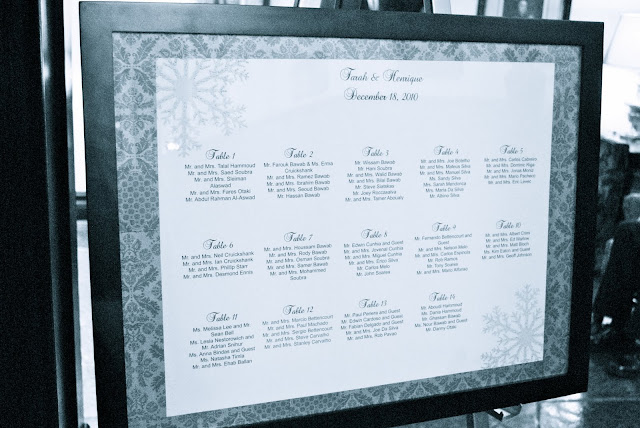 Tarah & Henrique
December 18, 2010
Table 1
Mr. and Mrs. Talal Hammoud
Mr. and Mrs. Saed Soubra
Mr. and Mrs. Sleiman
Alaswad
Mr. and Mrs. Fares Otaki
Mr. Abdul Rahman Al-Aswad
Table 2
Mr. Farouk Bawab & Ms. Erma
Cruickshank
Mr. and Mrs. Ramez Bawab
Mr. and Mrs. Ibrahim Bawab
Mr. and Mrs. Seoud Bawab
Mr. Hassan Bawab
Table 3
Mr. Wissam Bawab
Mr. Hani Soubra
Mr. and Mrs. Walid Bawab
Mr. and Mrs. Bilal Bawab
Mr. Steve
Mr. Joey Roncesvalva
Mr. and Mrs. Tamer Aboualy
Table 4
Mr. and Mrs. Joe Botelho
Mr. and Mrs. Mateus Silva
Mr. and Mrs. Manuel Silva
Ms. Sandy Silva
Ms. Sarah Mendonca
Mrs. Maria Da Silva
Mr. Albino Silva
Table 5
Mr. and Mrs. Carlos Cabreiro
Mr. and Mrs. Dominic Higa
Mr. and Mrs. Jonas Moniz
Mr. and Mrs. Mario Pacheco
Mr. and Mrs. Eric Lewis
Table 6
Mr. and Mrs. Neil Cruickshank
Mr. and Mrs. Ian Cruickshank
Mr. and Mrs. Phillip Starr
Mr. and Mrs. Desmond Ennis
Table 7
Mr. and Mrs. Houssam Bawab
Mr. and Mrs. Rody Bawab
Mr. and Mrs. Osman Soubra
Mr. and Mrs. Samer Bawab
Mr. and Mrs. Mohammed
Soubra
Table 8
Mr. Edwin Cunha and Guest
Mr. and Mrs. Jovenal Cunha
Mr. and Mrs. Miguel Cunha
Mr. and Mrs. Erico Silva
Mr. Carlos Melo
Mr. John Soares
Table 9
Mr. Fernando Bettencourt and
Guest
Mr. and Mrs. Nelson Melo
Mr. and Mrs. Carlos Espinola
Mr. Rob Ramos
Mr. Tony Soares
Mr. and Mrs. Mario Alfonso
Table 10
Mr. and Mrs. Albert Cross
Mr. and Mrs. Ed Majkot
Mr. and Mrs. Matt Bech
Ms. Kim Eakin and Guest
Mr. and Mrs. Geoff Johnson
Table 11
Ms. Melissa Lee and Mr.
Sean Bell
Ms. Lesia Nestorowich and
Mr. Adrian Snihur
Ms. Anna Bindas and Guest
Ms. Natasha Timla
Mr. and Mrs. Ehab Ballan
Table 12
Mr. and Mrs. Marcio Bettencourt
Mr. and Mrs. Paul Machado
Mr. and Mrs. Sergio Bettencourt
Mr. and Mrs. Steve Carvalho
Mr. and Mrs. Stanley Carvalho
Table 13
Mr. Paul Pereira and Guest
Mr. Edwin Cardoso and Guest
Mr. Fabian Delgato and Guest
Mr. and Mrs. Joe Da Silva
Mr. and Mrs. Rob Pevao
Table 14
Mr. Aboudi Hammoud
Ms. Dana Hammoud
Mr. Ghassan Bawab
Ms. Nour Bawab and Guest
Mr. Danny Otaki